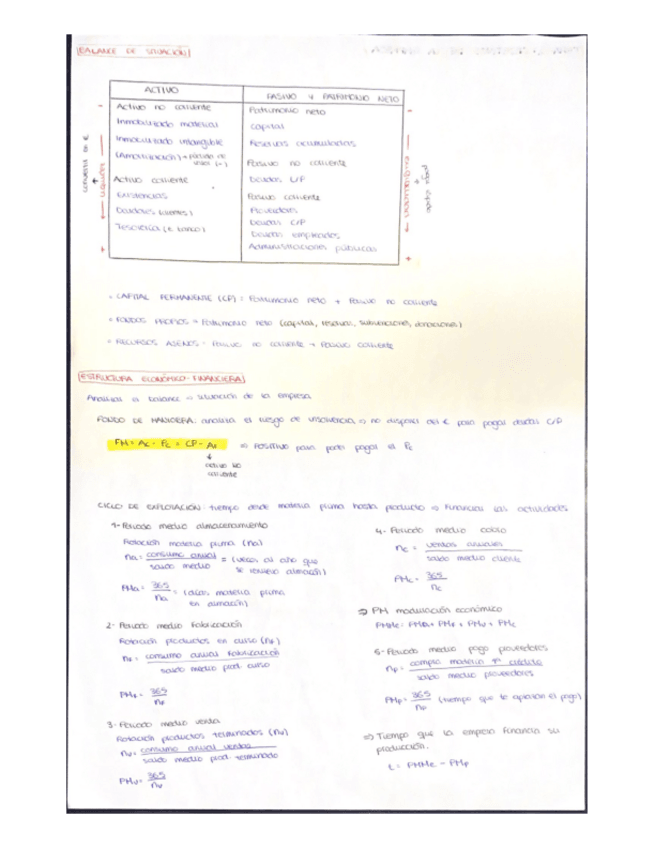 BALANCE DE SITUACIÓN
ACTIVO
PASIVO Y PATRIMONIO NETO
Activo no corriente
Inmovilizado material
Inmovilizado intangible
(Amortización) → pérdida de valor (-)
Activo corriente
Existencias
Deudores (clientes)
Tesorería (€ banco)
Patrimonio neto
Capital
Reservas acumuladas
Pasivo no corriente
Deudas L/P
Pasivo corriente
Proveedores
Deudas C/P
Deudas empleados
Administraciones públicas
convertir en €
liquidez
exigibilidad
• CAPITAL PERMANENTE (CP): Patrimonio neto + Pasivo no corriente
• FONDOS PROPIOS → Patrimonio neto (capital, reservas, subvenciones, donaciones)
• RECURSOS AJENOS: Pasivo no corriente + Pasivo corriente
ESTRUCTURA ECONÓMICO-FINANCIERA
Analizar el balance ⇒ situación de la empresa
FONDO DE MANIOBRA: analiza el riesgo de insolvencia, ⇒ no disponer del € para pagar deudas C/P
FM = Ac - Pc = CP - An ⇒ POSITIVO para poder pagar el Pc
↓
activo no
corriente
CICLO DE EXPLOTACIÓN: tiempo desde materia prima hasta producto ⇒ Financiar las actividades
1- Periodo medio almacenamiento
Rotación materia prima (na)
na = consumo anual / saldo medio = (veces al año que se renueva almacén)
PMa = 365 / na = (días materia prima en almacén)
2- Periodo medio Fabricación
Rotación productos en curso (nf)
nf = consumo anual fabricación / saldo medio prod. curso
PMf = 365 / nf
3- Periodo medio venta
Rotación productos terminados (nv)
nv = consumo anual ventas / saldo medio prod. terminado
PMv = 365 / nv
4- Periodo medio cobro
nc = ventas anuales / saldo medio cliente
PMc = 365 / nc
⇒ PM maduración económico
PMME = PMa + PMf + PMv + PMc
5- Periodo medio pago proveedores
np = compra materia 1ª crédito / saldo medio proveedores
PMp = 365 / np (tiempo que te aplazan el pago)
⇒ Tiempo que la empresa financia su
producción.
t = PMME - PMp